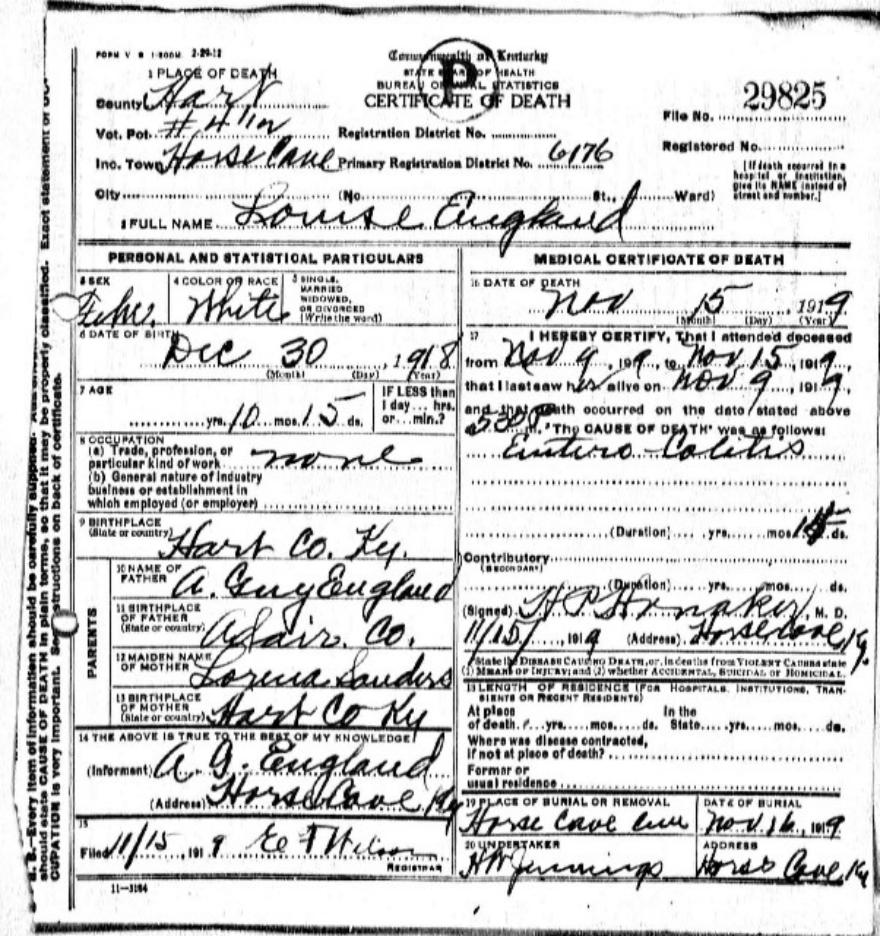 FORM V S 1-500M 2-29-12
Commonwealth of Kentucky
STATE BOARD OF HEALTH
BUREAU OF VITAL STATISTICS
CERTIFICATE OF DEATH
P
1 PLACE OF DEATH
County Hart
Vot. Pct. # 4
Inc. Town Horse Cave
City
Registration District No.
Primary Registration District No. 6176
(No. St., Ward)
File No. 29825
Registered No.
[If death occurred in a
hospital or institution,
give its NAME instead of
street and number.]
2 FULL NAME Louise England
PERSONAL AND STATISTICAL PARTICULARS
3 SEX
4 COLOR OR RACE White
5 SINGLE,
MARRIED
WIDOWED,
OR DIVORCED
(Write the word)
6 DATE OF BIRTH
Dec 30, 1918
(Month) (Day) (Year)
7 AGE
yrs. 10 mos. 15 ds.
IF LESS than
1 day... hrs.
or... min.?
8 OCCUPATION
(a) Trade, profession, or
particular kind of work none
(b) General nature of industry
business or establishment in
which employed (or employer)
9 BIRTHPLACE
(State or country) Hart Co. Ky.
PARENTS
10 NAME OF
FATHER A. Guy England
11 BIRTHPLACE
OF FATHER
(State or country) Adair Co.
12 MAIDEN NAME
OF MOTHER Lorena Sanders
13 BIRTHPLACE
OF MOTHER
(State or country) Hart Co Ky
14 THE ABOVE IS TRUE TO THE BEST OF MY KNOWLEDGE
(Informant) A. G. England
(Address) Horse Cave Ky
15
Filed 11/15, 1919 Wilson
REGISTRAR
11-3184
MEDICAL CERTIFICATE OF DEATH
16 DATE OF DEATH
Nov 15, 1919
(Month) (Day) (Year)
17 I HEREBY CERTIFY, That I attended deceased
from Nov 9, 1919, to Nov 15, 1919,
that I last saw her alive on Nov 9, 1919,
and that death occurred on the date stated above
m. The CAUSE OF DEATH was as follows:
Entero Colitis
(Duration) yrs. mos. ds.
Contributory
(SECONDARY)
(Duration) yrs. mos. ds.
(Signed) H P Honaker, M. D.
11/15/, 1919 (Address) Horse Cave Ky.
State the DISEASE CAUSING DEATH, or, in deaths from VIOLENT CAUSES state
(1) MEANS OF INJURY; and (2) whether ACCIDENTAL, SUICIDAL OR HOMICIDAL.
18 LENGTH OF RESIDENCE (FOR HOSPITALS, INSTITUTIONS, TRAN-
SIENTS OR RECENT RESIDENTS)
At place In the
of death yrs. mos. ds. State yrs. mos. ds.
Where was disease contracted,
if not at place of death?
Former or
usual residence
19 PLACE OF BURIAL OR REMOVAL
Horse Cave Cem
DATE OF BURIAL
Nov 16, 1919
20 UNDERTAKER
HW Jennings
ADDRESS
Horse Cave, Ky
N. B.—Every item of information should be carefully supplied. Exact statement of OC-
should state CAUSE OF DEATH in plain terms, so that it may be properly classified.
CUPATION is very important. See instructions on back of certificate.